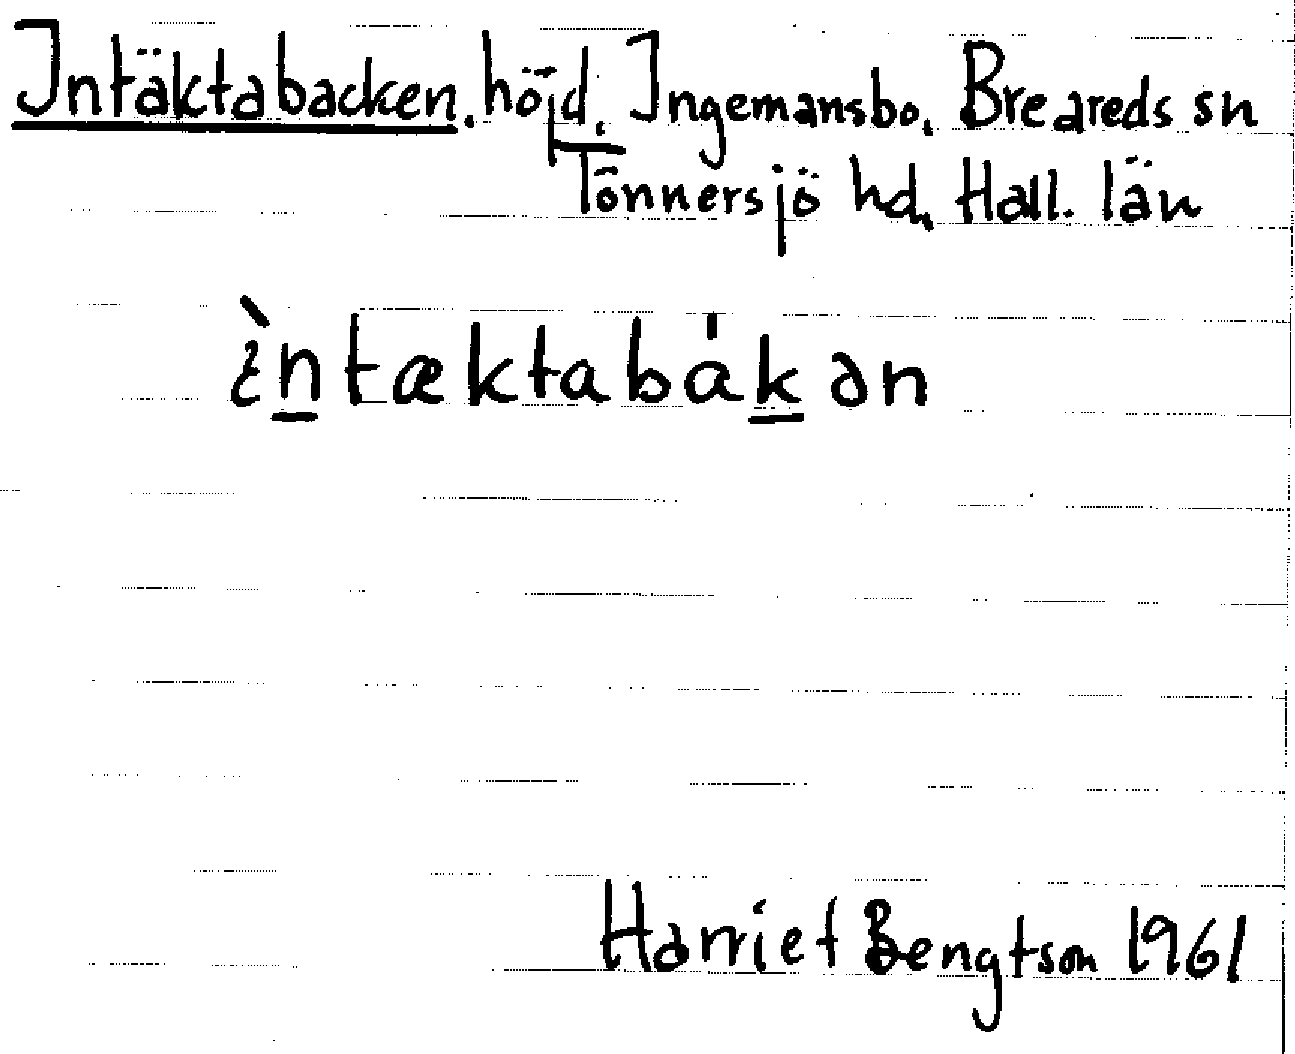 Intäktabacken. höjd. Ingemansbo. Breareds sn
Tönnersjö hd. Hall. län
ìntæktabákən
Harriet Bengtson 1961